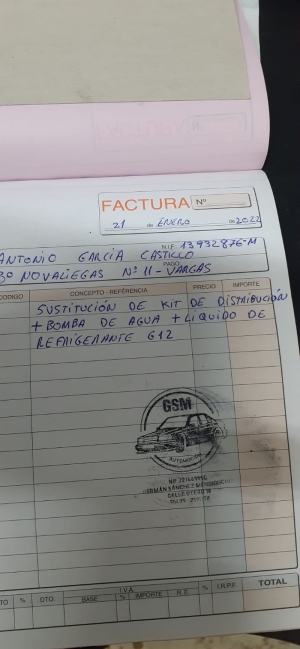 FACTURA Nº
21 de ENERO de 2022
N.I.F. 13932876-M
ANTONIO GARCIA CASTILLO
PAGO:
Bº NOVALIEGAS Nº 11 - VARGAS
CODIGO CONCEPTO - REFERENCIA PRECIO IMPORTE
SUSTITUCIÓN DE KIT DE DISTRIBUCIÓN
+ BOMBA DE AGUA + LIQUIDO DE
REFRIGERANTE G12
GSM
AUTOMOCIÓN
GERMÁN SÁNCHEZ
CALLE OTERO
I.V.A.
DTO. BASE % IMPORTE R.E. % I.R.P.F. TOTAL